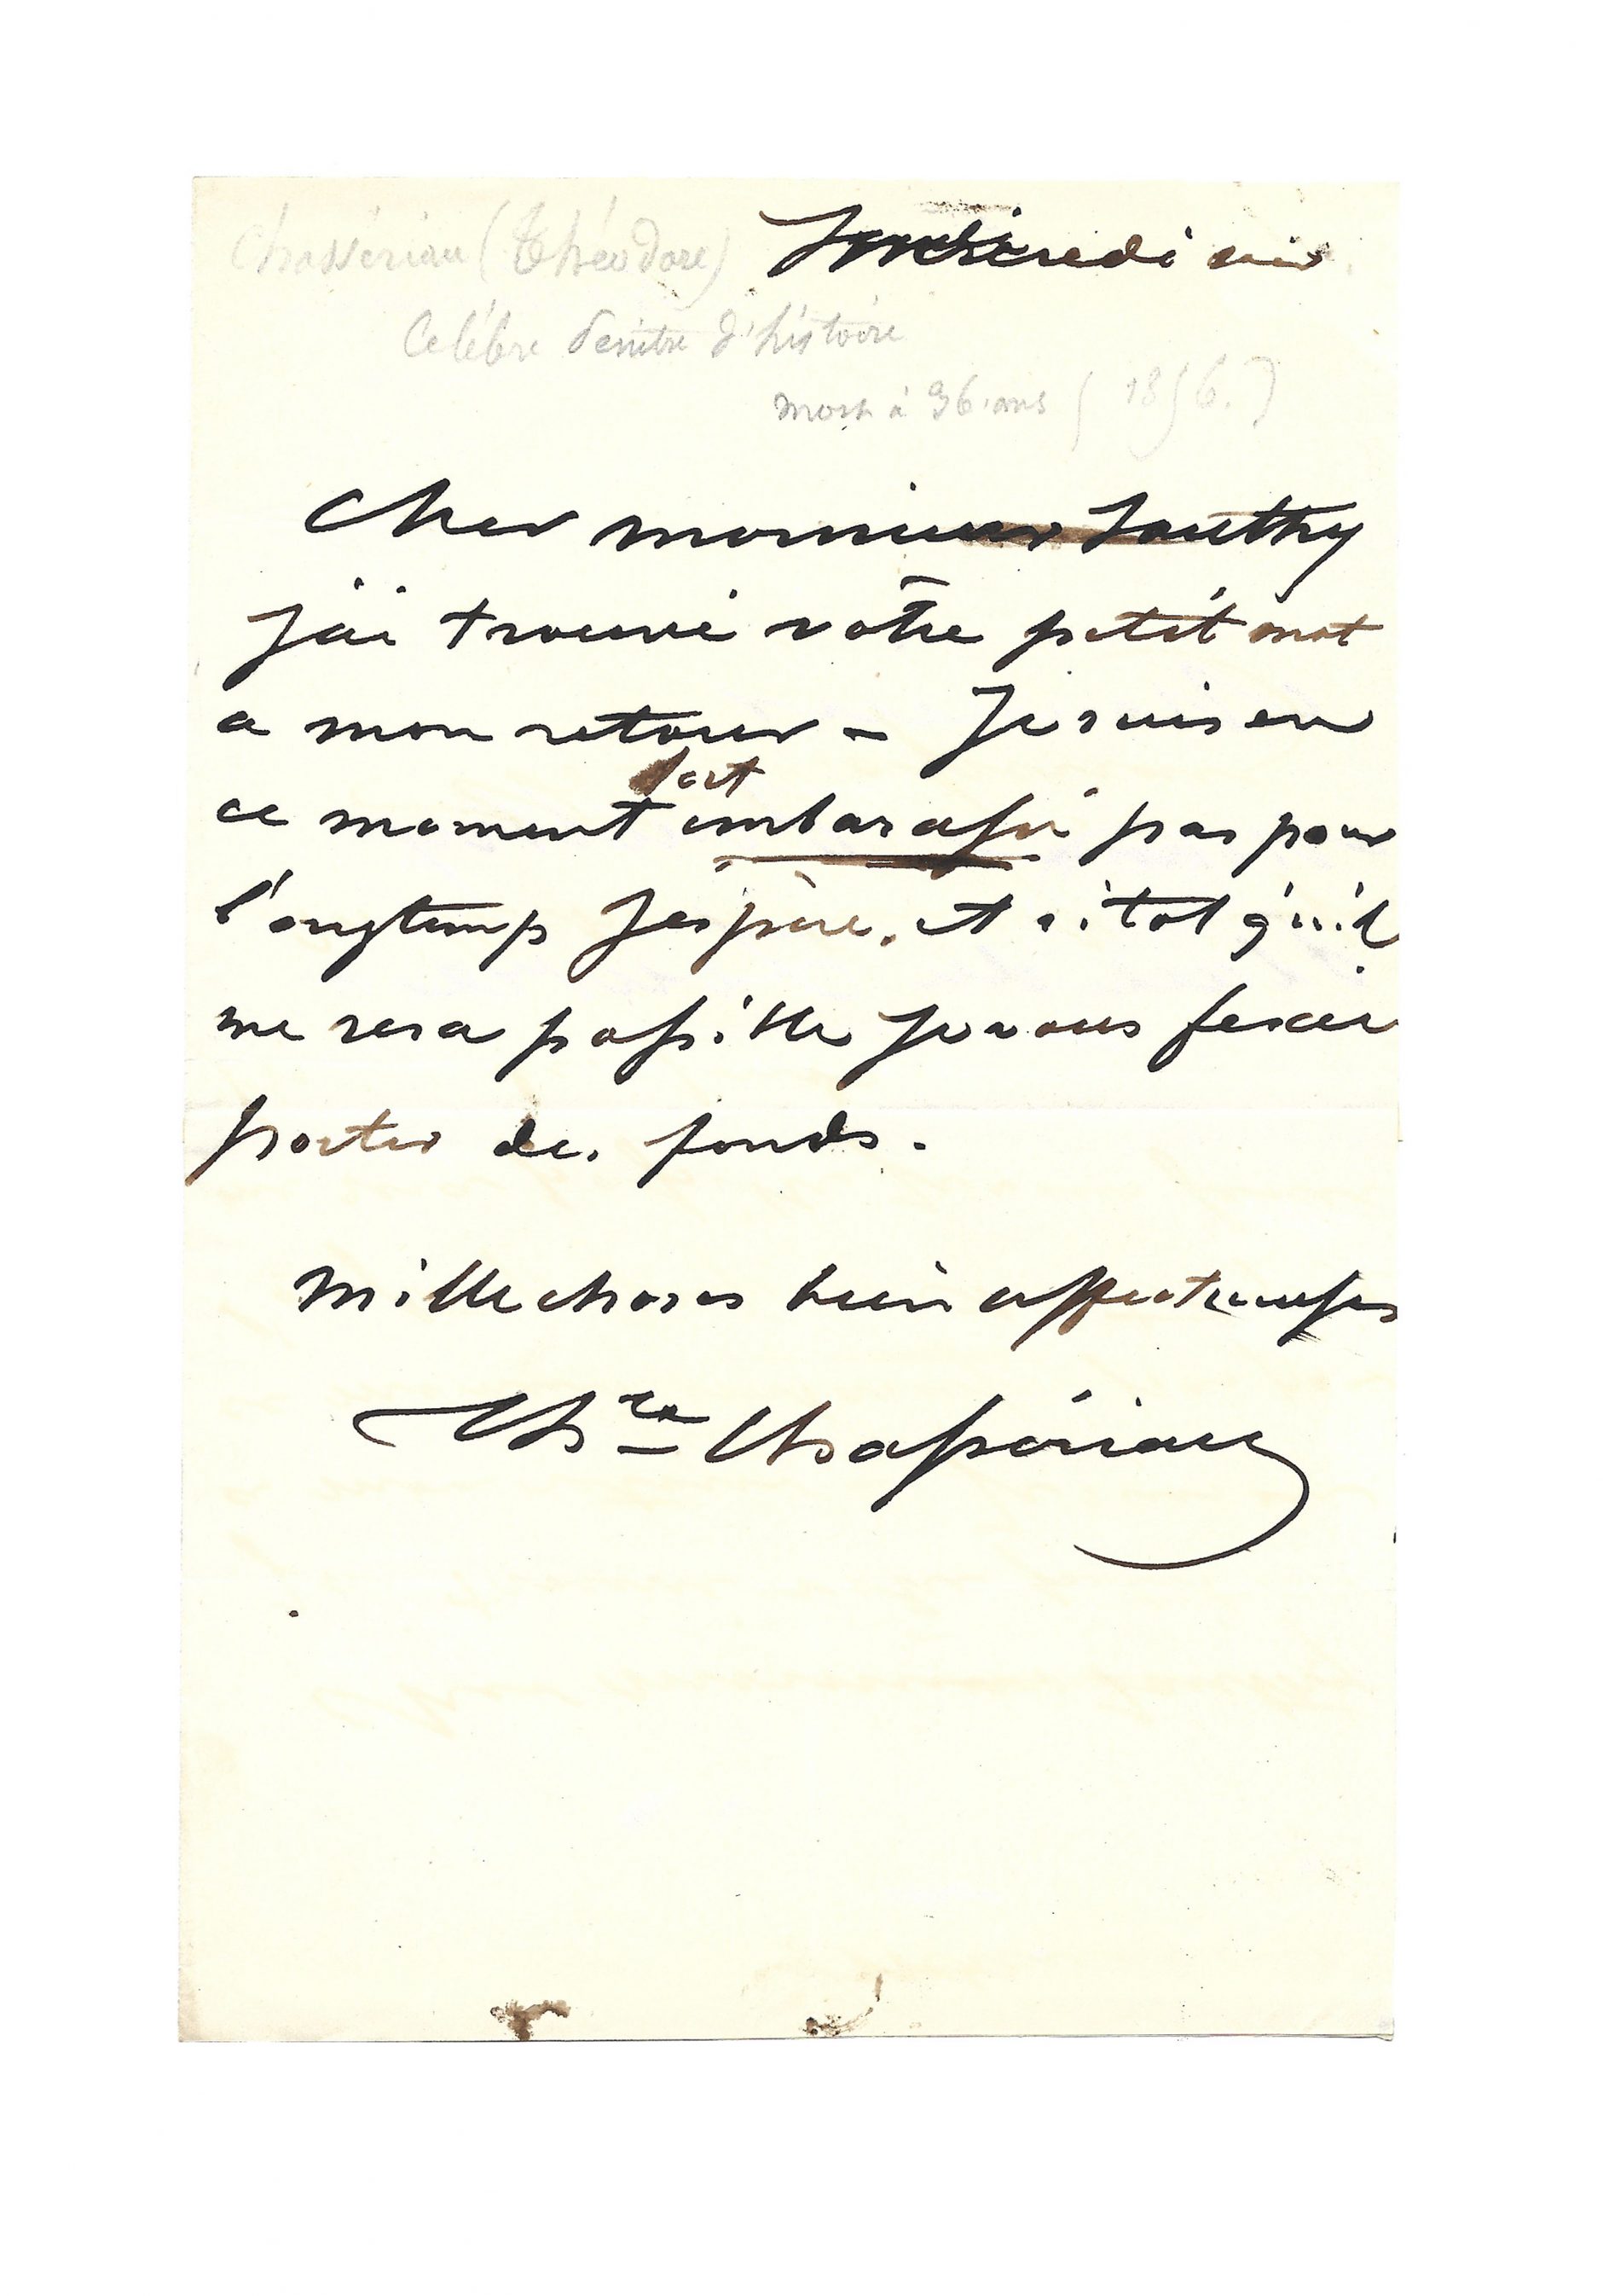 Chassériau (Théodore)
soir
Celébre Peintre d'histoire
mort à 36 ans (1856.)
Cher monsieur Southy
J'ai trouvé vôtre petit mot
a mon retour – Je suis en
ce moment fort embarassé pas pour
l'ongtemps J'espère. et sitot qu'il
me sera possible Je vous ferai
porter des fonds.
Mille choses bien affectueuses
Th^re Chassériau